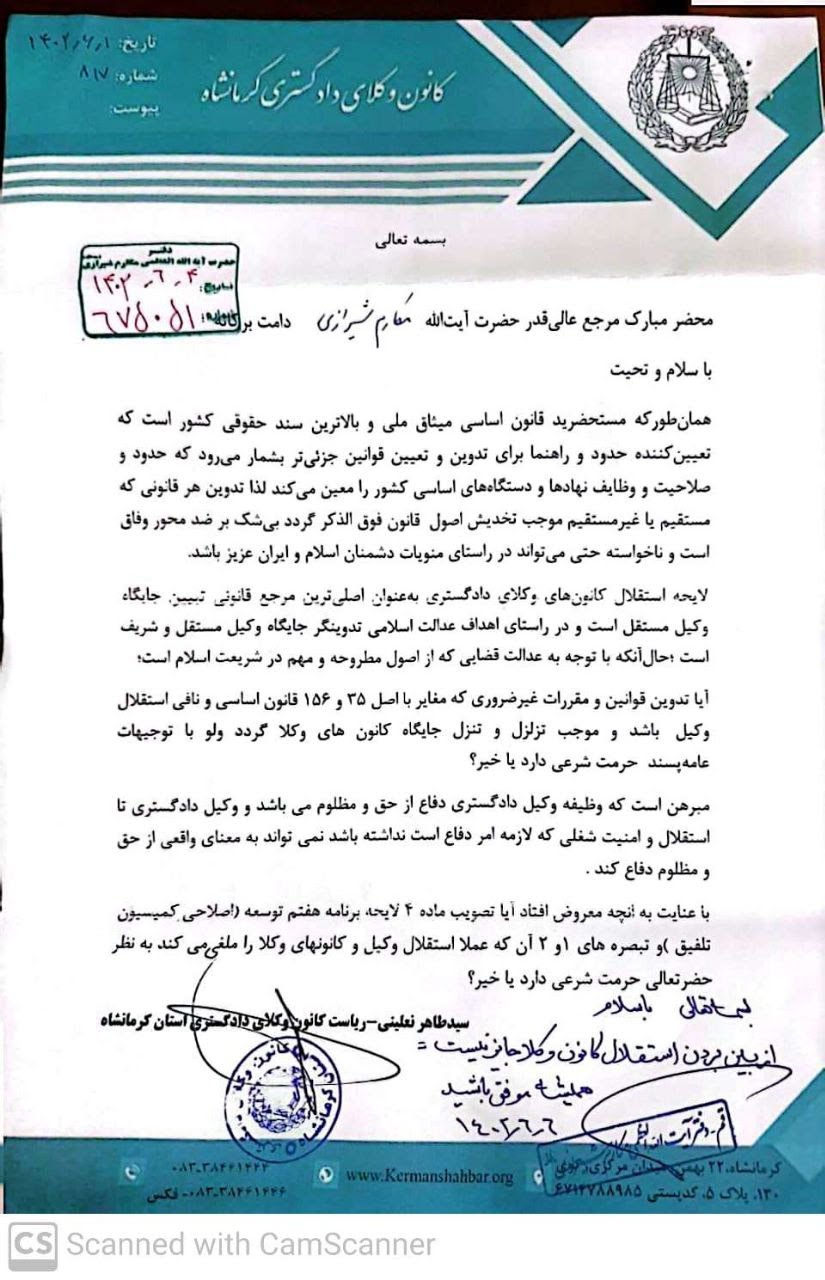 تاریخ: ۱۴۰۲٫۶٫۱
شماره: ۸۱۷
پیوست:
کانون وکلای دادگستری کرمانشاه
بسمه تعالی
دفتر
حضرت آیة الله العظمی مکارم شیرازی
تاریخ: ۱۴۰۲-۶-۴
شماره: ۶۷۵۰۵۱
محضر مبارک مرجع عالی‌قدر حضرت آیت‌الله مکارم شیرازی دامت برکاته
با سلام و تحیت
همان‌طورکه مستحضرید قانون اساسی میثاق ملی و بالاترین سند حقوقی کشور است که
تعیین‌کننده حدود و راهنما برای تدوین و تعیین قوانین جزئی‌تر بشمار می‌رود که حدود و
صلاحیت و وظایف نهادها و دستگاه‌های اساسی کشور را معین می‌کند لذا تدوین هر قانونی که
مستقیم یا غیرمستقیم موجب تخدیش اصول قانون فوق الذکر گردد بی‌شک بر ضد محور وفاق
است و ناخواسته حتی می‌تواند در راستای منویات دشمنان اسلام و ایران عزیز باشد.
لایحه استقلال کانون‌های وکلای دادگستری به‌عنوان اصلی‌ترین مرجع قانونی تبیین جایگاه
وکیل مستقل است و در راستای اهداف عدالت اسلامی تدوینگر جایگاه وکیل مستقل و شریف
است ؛حال‌آنکه با توجه به عدالت قضایی که از اصول مطروحه و مهم در شریعت اسلام است؛
آیا تدوین قوانین و مقررات غیرضروری که مغایر با اصل ۳۵ و ۱۵۶ قانون اساسی و نافی استقلال
وکیل باشد و موجب تزلزل و تنزل جایگاه کانون های وکلا گردد ولو با توجیهات
عامه‌پسند حرمت شرعی دارد یا خیر؟
مبرهن است که وظیفه وکیل دادگستری دفاع از حق و مظلوم می باشد و وکیل دادگستری تا
استقلال و امنیت شغلی که لازمه امر دفاع است نداشته باشد نمی تواند به معنای واقعی از حق
و مظلوم دفاع کند .
با عنایت به آنچه معروض افتاد آیا تصویب ماده ۴ لایحه برنامه هفتم توسعه (اصلاحی کمیسیون
تلفیق )و تبصره های ۱و ۲ آن که عملا استقلال وکیل و کانونهای وکلا را ملغی‌می کند به نظر
حضرتعالی حرمت شرعی دارد یا خیر؟
سیدطاهر نعلینی-ریاست کانون وکلای دادگستری استان کرمانشاه
بسمه تعالی باسلام
از بین بردن استقلال کانون وکلا جایز نیست =
همیشه موفق باشید
۱۴۰۲٫۶٫۶
۰۸۳-۳۸۴۶۱۴۴۴
۰۸۳-۳۸۴۶۱۴۴۶- فکس
www.Kermanshahbar.org
کرمانشاه، ۲۲ بهمن، میدان مرکزی،
۱۳۰، پلاک ۵، کدپستی ۶۷۱۴۷۸۸۹۸۵
CS Scanned with CamScanner